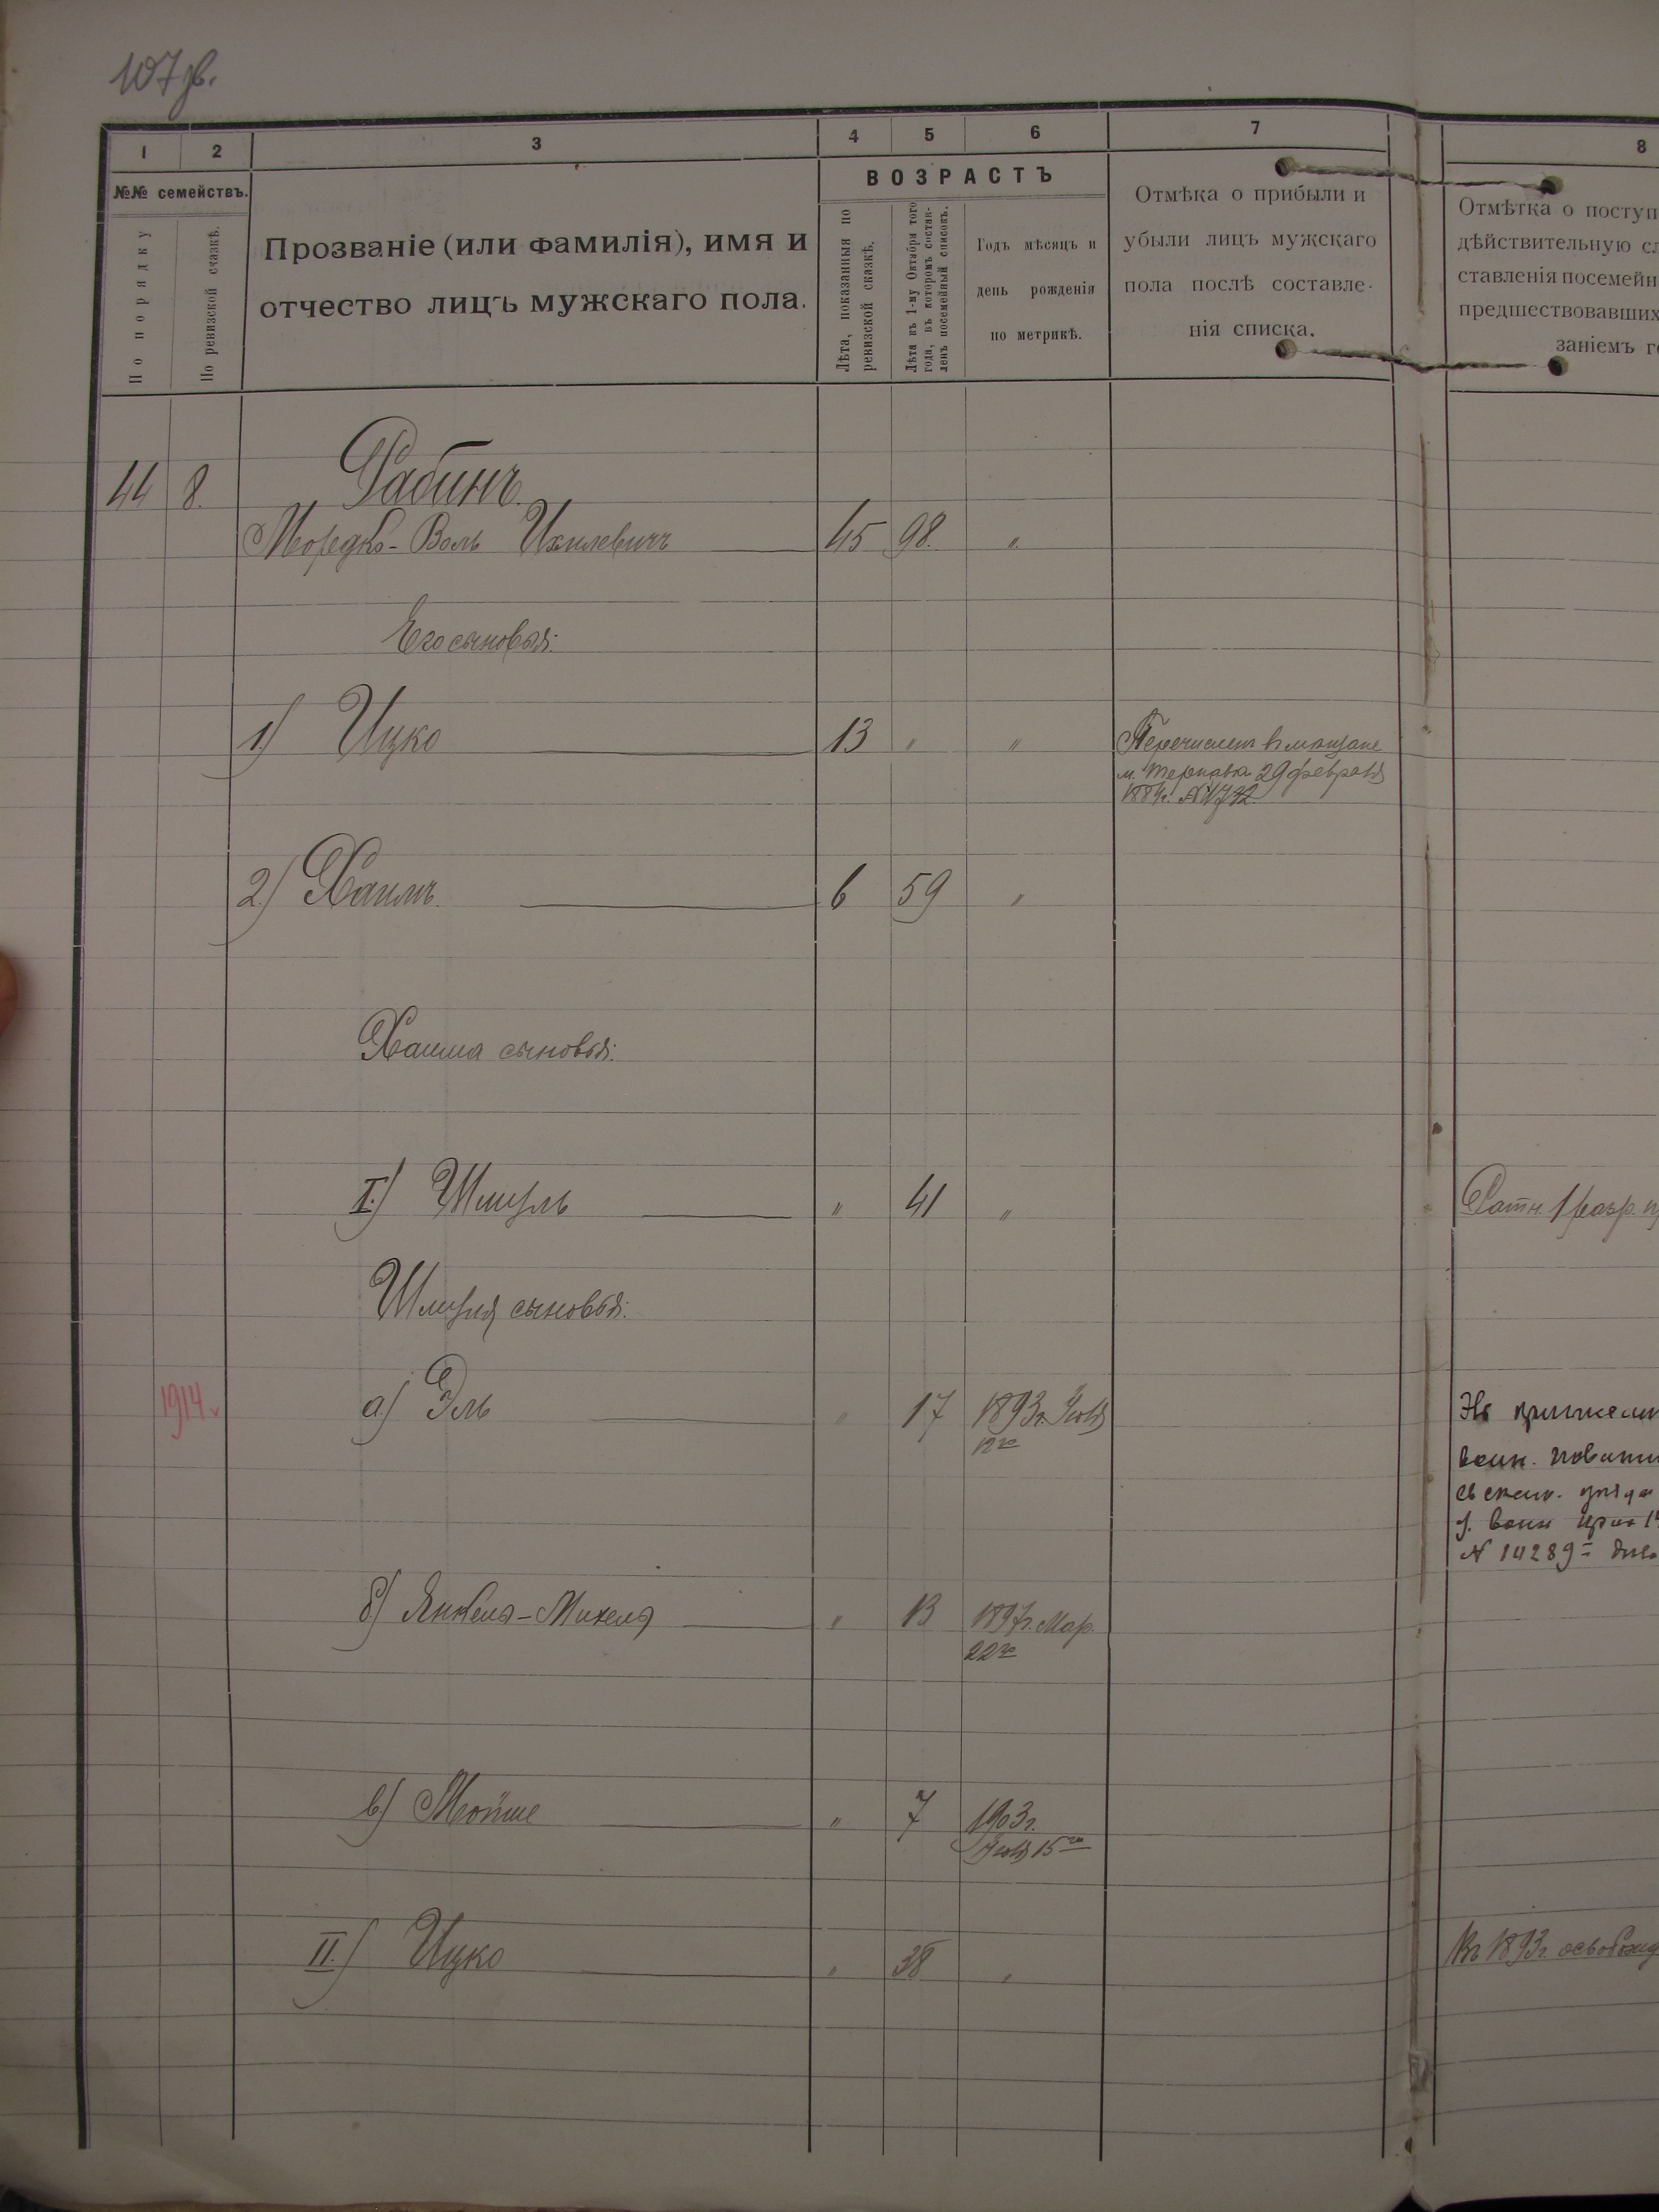 107 об.
1 2 3 4 5 6 7 8
№№ семействъ.
По порядку
По ревизской сказкѣ.
Прозваніе (или фамилія), имя и
отчество лицъ мужскаго пола.
ВОЗРАСТЪ
Лѣта, показанныя по
ревизской сказкѣ.
Лѣта къ 1-му Октября того
года, въ которомъ состав-
ленъ посемейный списокъ.
Годъ мѣсяцъ и
день рожденія
по метрикѣ.
Отмѣка о прибыли и
убыли лицъ мужскаго
пола послѣ составле-
нія списка.
Отмѣтка о поступ
дѣйствительную сл
ставленія посемейн
предшествовавших
заніемъ г
44 8. Рабинъ.
Мордко-Воль Ихилевичъ 45 98. "
Его сыновья:
1) Ицко 13 " " Перечислен в мещане
м. Тернавка 29 февраля
1884г. №1732.
2) Хаимъ. 6 59 "
Хаима сыновья:
I.) Шмуль " 41 " Ратн. 1 разр.
Шмуля сыновья:
1914 а) Эль " 17 1893г. Іюля
12го
воин.
№ 14289
б) Янкель-Михель " 13 1897г. Мар.
22го
в) Мойше " 7 1903г.
Іюля 15го
II.) Ицко " 38 " Въ 1893г. освобожд